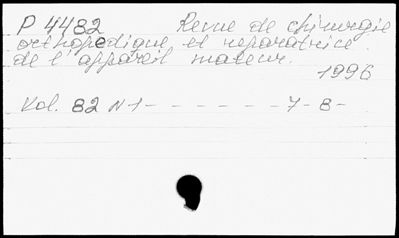 P 4482 Revue de chirurgie
orthopedique et reparatrice
de l'appareil moteur.
1996
Vol. 82 N 1 - - - - - - - 7 - 8 -